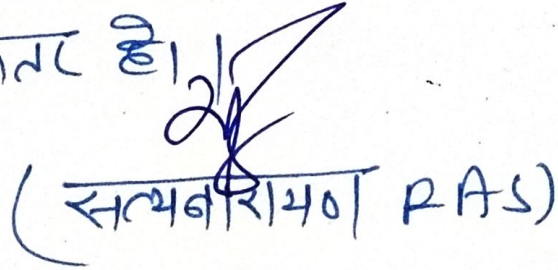 है।
(सत्यनारायण RAS)